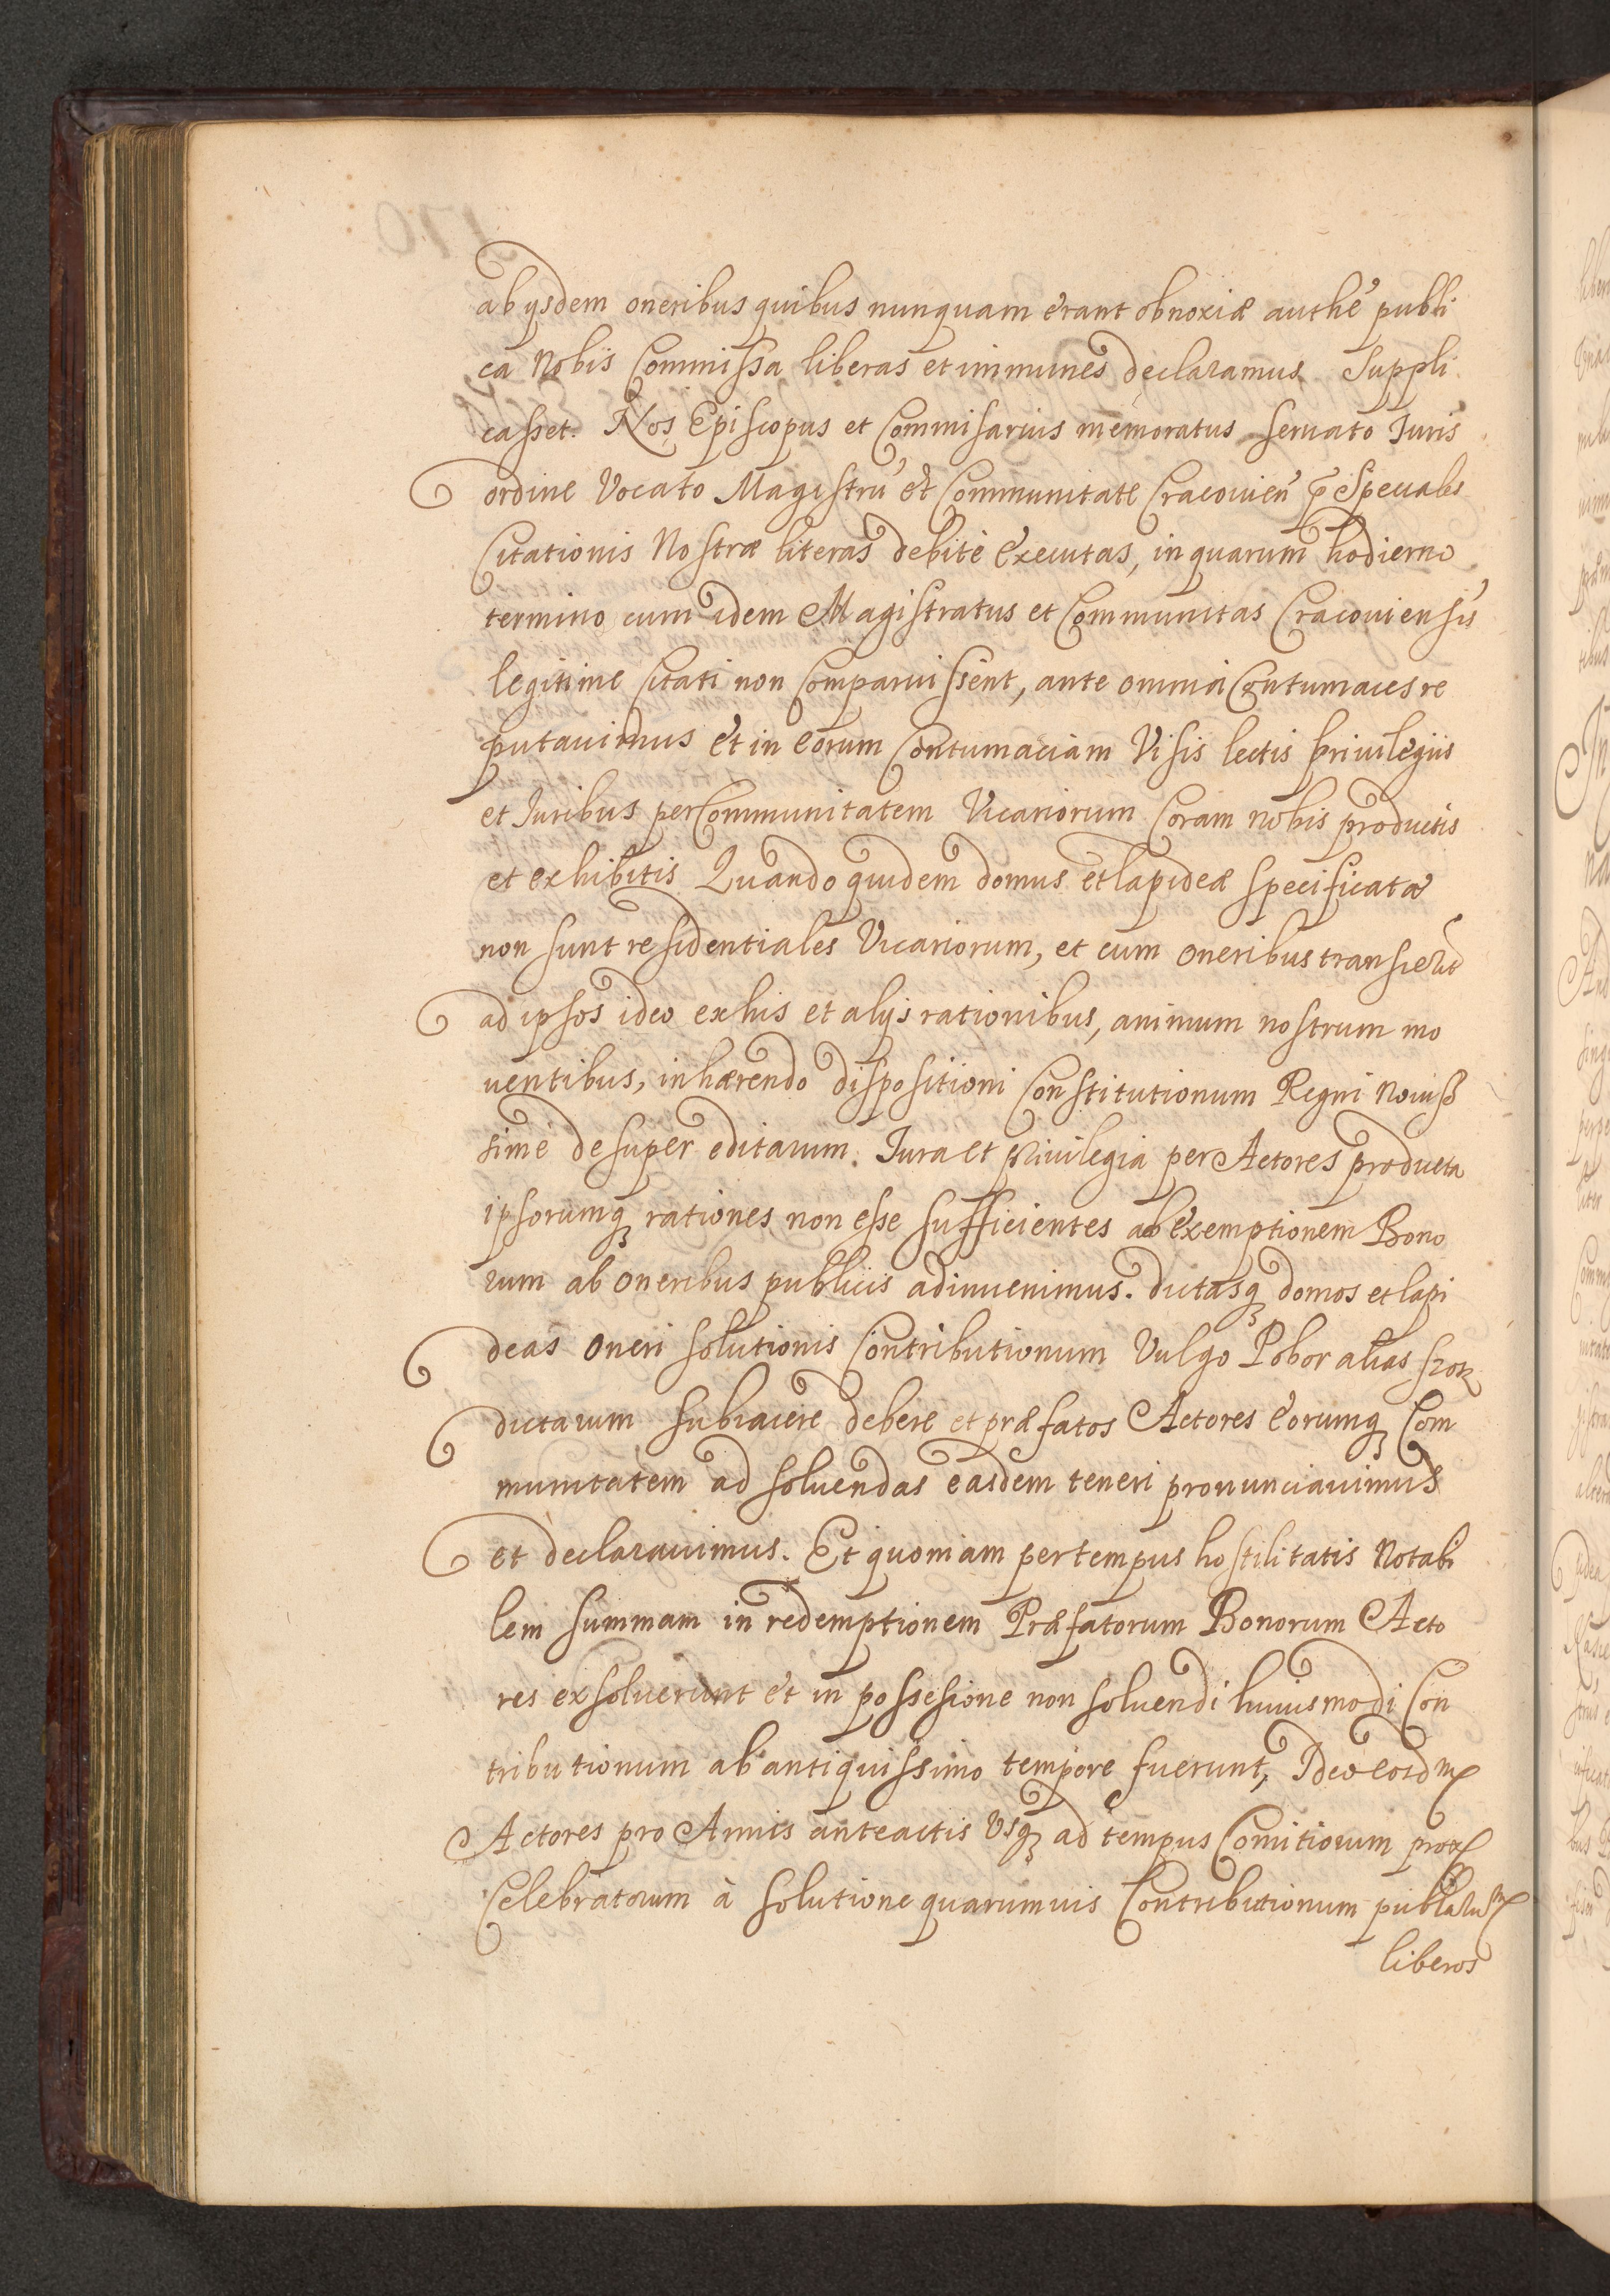 ab ijsdem oneribus quibus nunquam erant obnoxiæ authẽ publi
ca Nobis Commissa liberas et immunes declaramus Suppli
casset. Nos Episcopus et Commisarius memoratus seruato Iuris
ordine Vocato Magistrũ et Communitate Cracouien̄ Speciales
Citationis Nostræ literas debite executas, in quarum hodierno
termino cum idem Magistratus et Communitas Cracouiensis
legitime Citati non Comparuissent, ante omnia Contumaces re
putauimus et in eorum Contumaciam Visis lectis priuilegiis
et Iuribus per Communitatem Vicariorum Coram nobis productis
et exhibitis Quando quidem domus et lapideæ specificatæ
non sunt residentiales Vicariorum, et cum oneribus transierũt
ad ipsos ideo ex his et alijs rationibus, animum nostrum mo
uentibus, inhærendo dispositioni Constitutionum Regni Nouis
sime desuper editarum. Iura et priuilegia per Actores producta
ipsorumq̃ rationes non esse sufficientes ab exemptionem Bono
rum ab oneribus publicis adinuenimus. dictasq̃ domos et lapi
deas oneri solutionis Contributionum Vulgo Pobor alias szos
dictarum subiacere debere et præfatos Actores eorumq̃ Com
munitatem ad soluendas easdem teneri pronunciauimus
et declarauimus. Et quoniam per tempus hostilitatis Notabi
lem summam in redemptionem Præfatorum Bonorum Acto
res exsoluerunt et in possesione non soluendi huiusmodi Con
tributionum ab antiquissimo tempore fuerunt, Ideo eosdm
Actores pro Annis anteactis Vsq̃ ad tempus Comitiorum prox
Celebratorum à solutione quarumuis Contributionum publarum
liberos
170